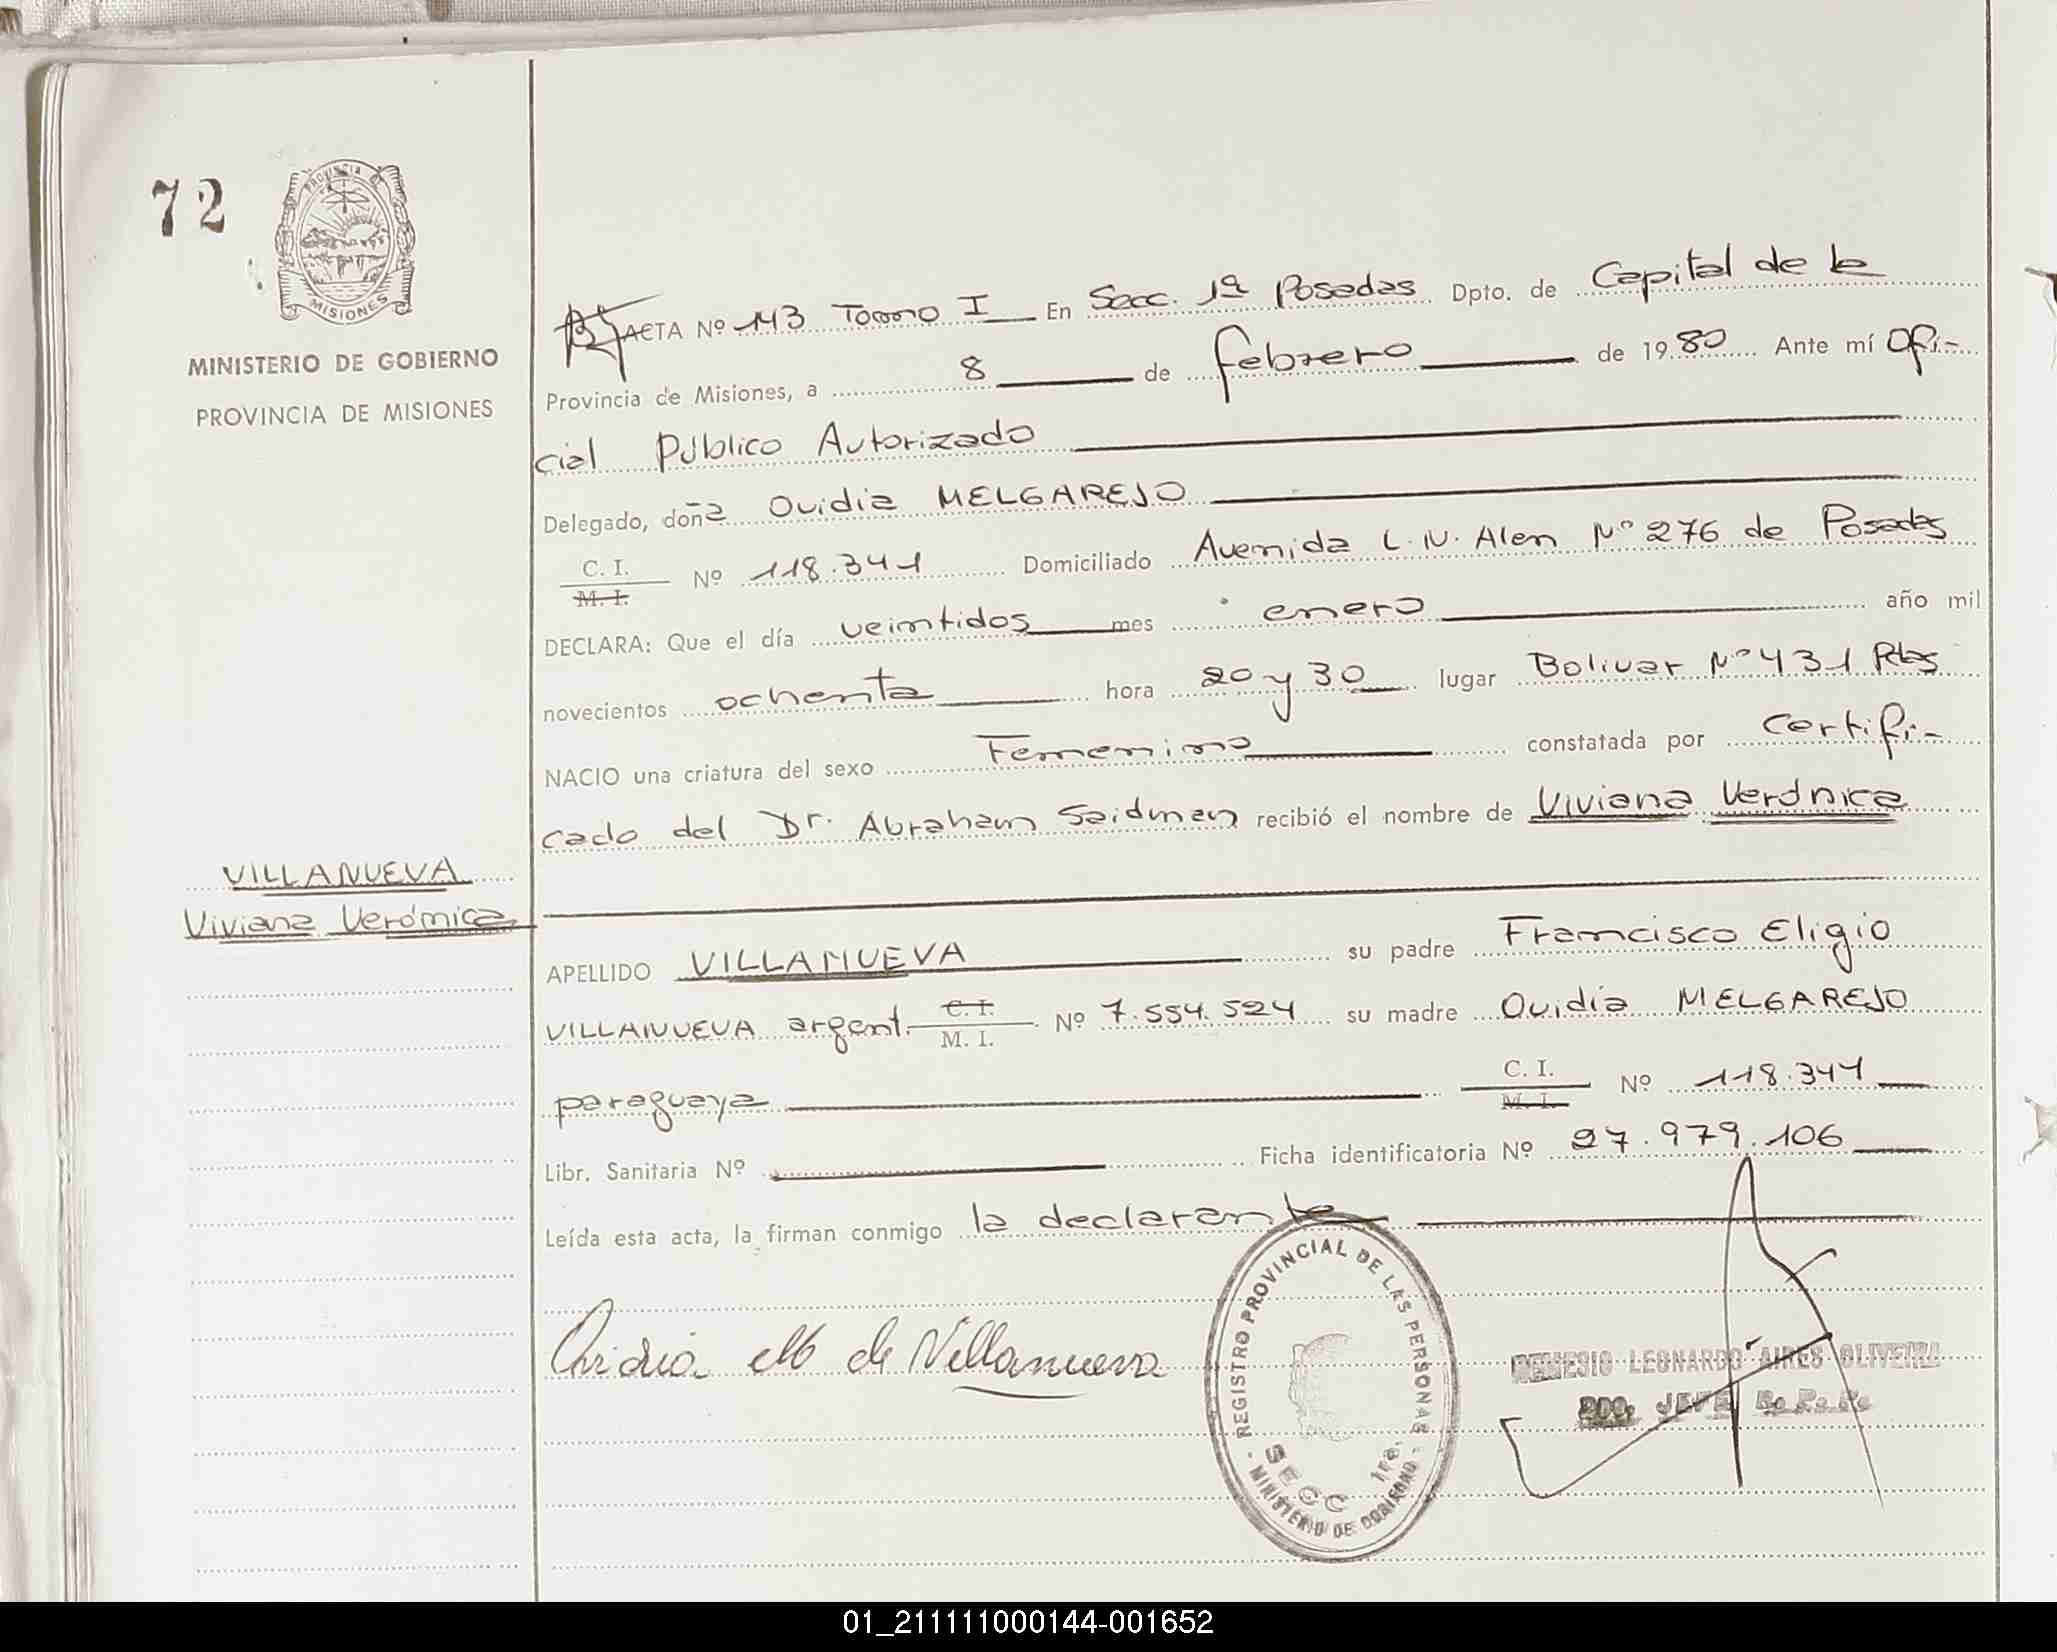 72
PROVINCIA DE
MISIONES
MINISTERIO DE GOBIERNO
PROVINCIA DE MISIONES
ACTA Nº 143 Tomo I En Secc. 1ª Posadas Dpto. de Capital de la
Provincia de Misiones, a 8 de febrero de 1980 Ante mí Ofi-
cial Público Autorizado
Delegado, doña Ovidia MELGAREJO
C. I. M. I. Nº 118.341 Domiciliado Avenida L. N. Alen Nº 276 de Posadas
DECLARA: Que el día veintidos mes enero año mil
novecientos ochenta hora 20 y 30 lugar Bolivar Nº 431 Pdas
NACIO una criatura del sexo Femenino constatada por certifi-
cado del Dr. Abraham Saidman recibió el nombre de Viviana Verónica
VILLANUEVA
Viviana Verónica
APELLIDO VILLANUEVA su padre Francisco Eligio
VILLANUEVA argent. C. I. M. I. Nº 7.554.524 su madre Ovidia MELGAREJO
paraguaya C. I. M. I. Nº 118.341
Libr. Sanitaria Nº Ficha identificatoria Nº 27.979.106
Leída esta acta, la firman conmigo la declarante
Ovidia M de Villanueva
REGISTRO PROVINCIAL DE LAS PERSONAS
SECC 1ra.
MINISTERIO DE GOBIERNO
NEMESIO LEONARDO AIRES OLIVEIRA
2DO. JEFE R.P.P.
01_211111000144-001652